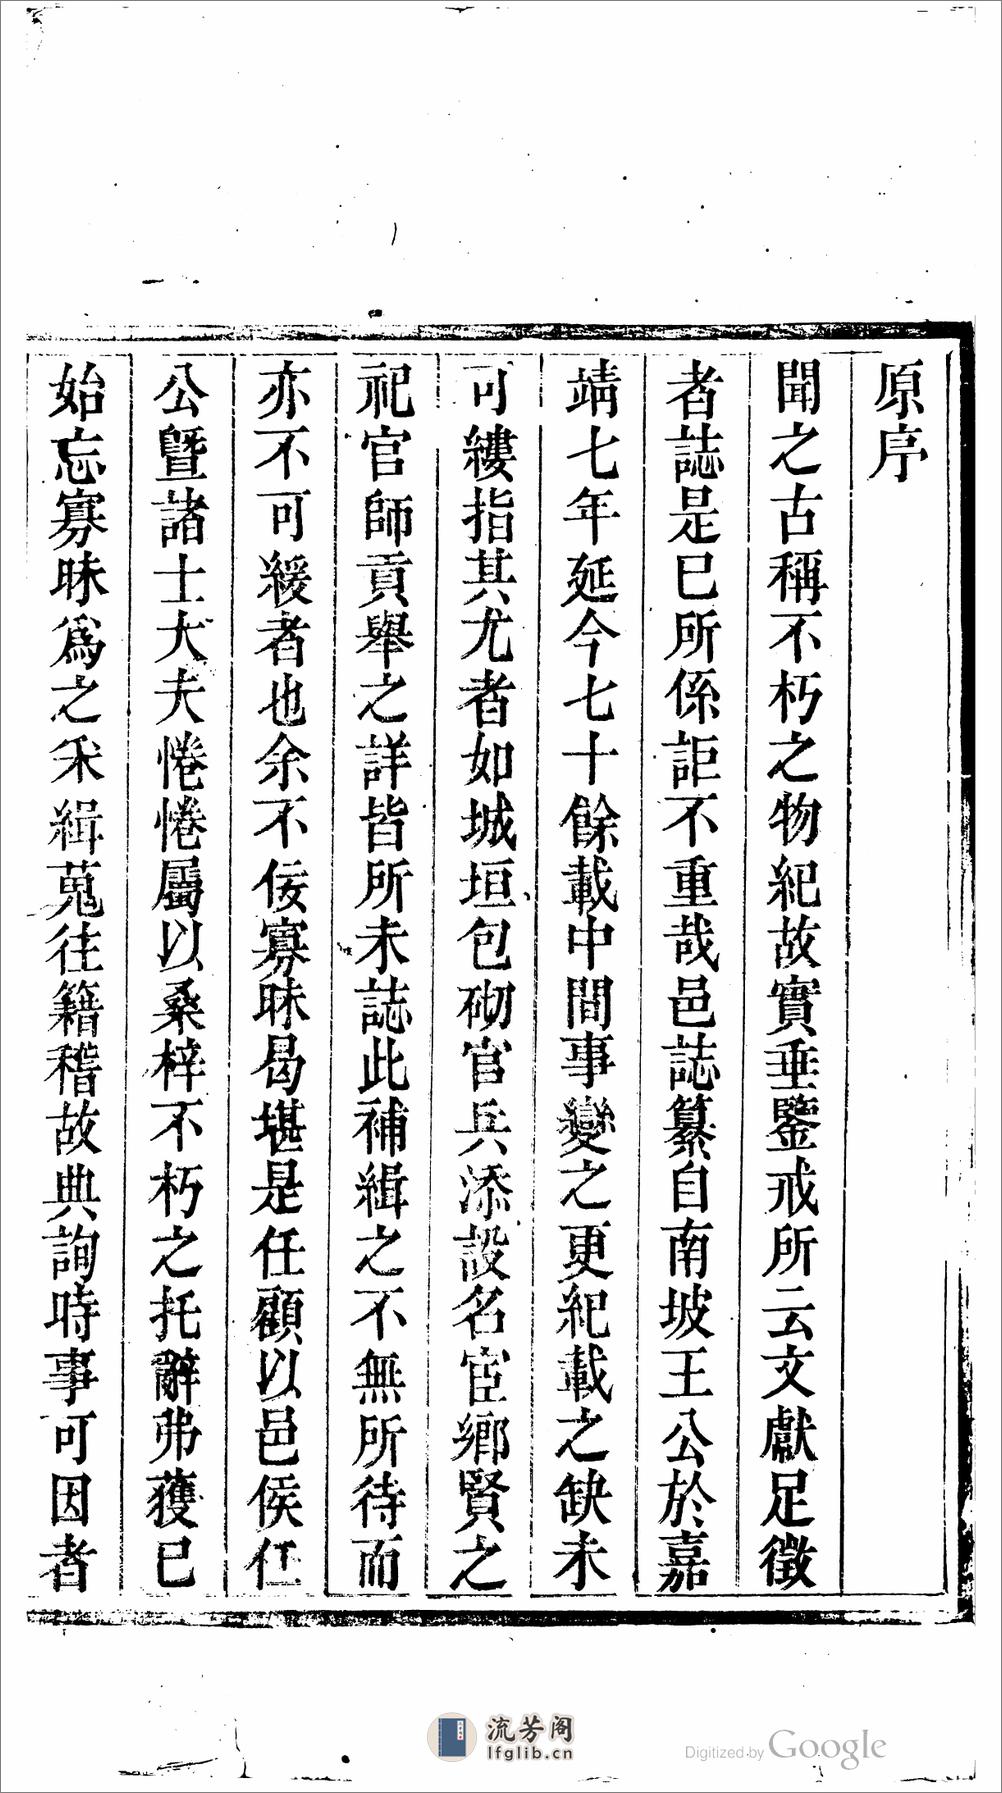 原序
聞之古稱不朽之物紀故實垂鑒戒所云文獻足徵
者誌是已所係詎不重哉邑誌纂自南坡王公於嘉
靖七年延今七十餘載中間事變之更紀載之缺未
可縷指其尤者如城垣包砌官兵添設名宦鄉賢之
祀官師貢舉之詳皆所未誌此補緝之不無所待而
亦不可緩者也余不佞寡昧曷堪是任顧以邑侯任
公暨諸士大夫惓惓屬以桑梓不朽之托辭弗獲已
始忘寡昧爲之采緝蒐往籍稽故典詢時事可因者
流芳阁
lfglib.cn
Digitized by Google